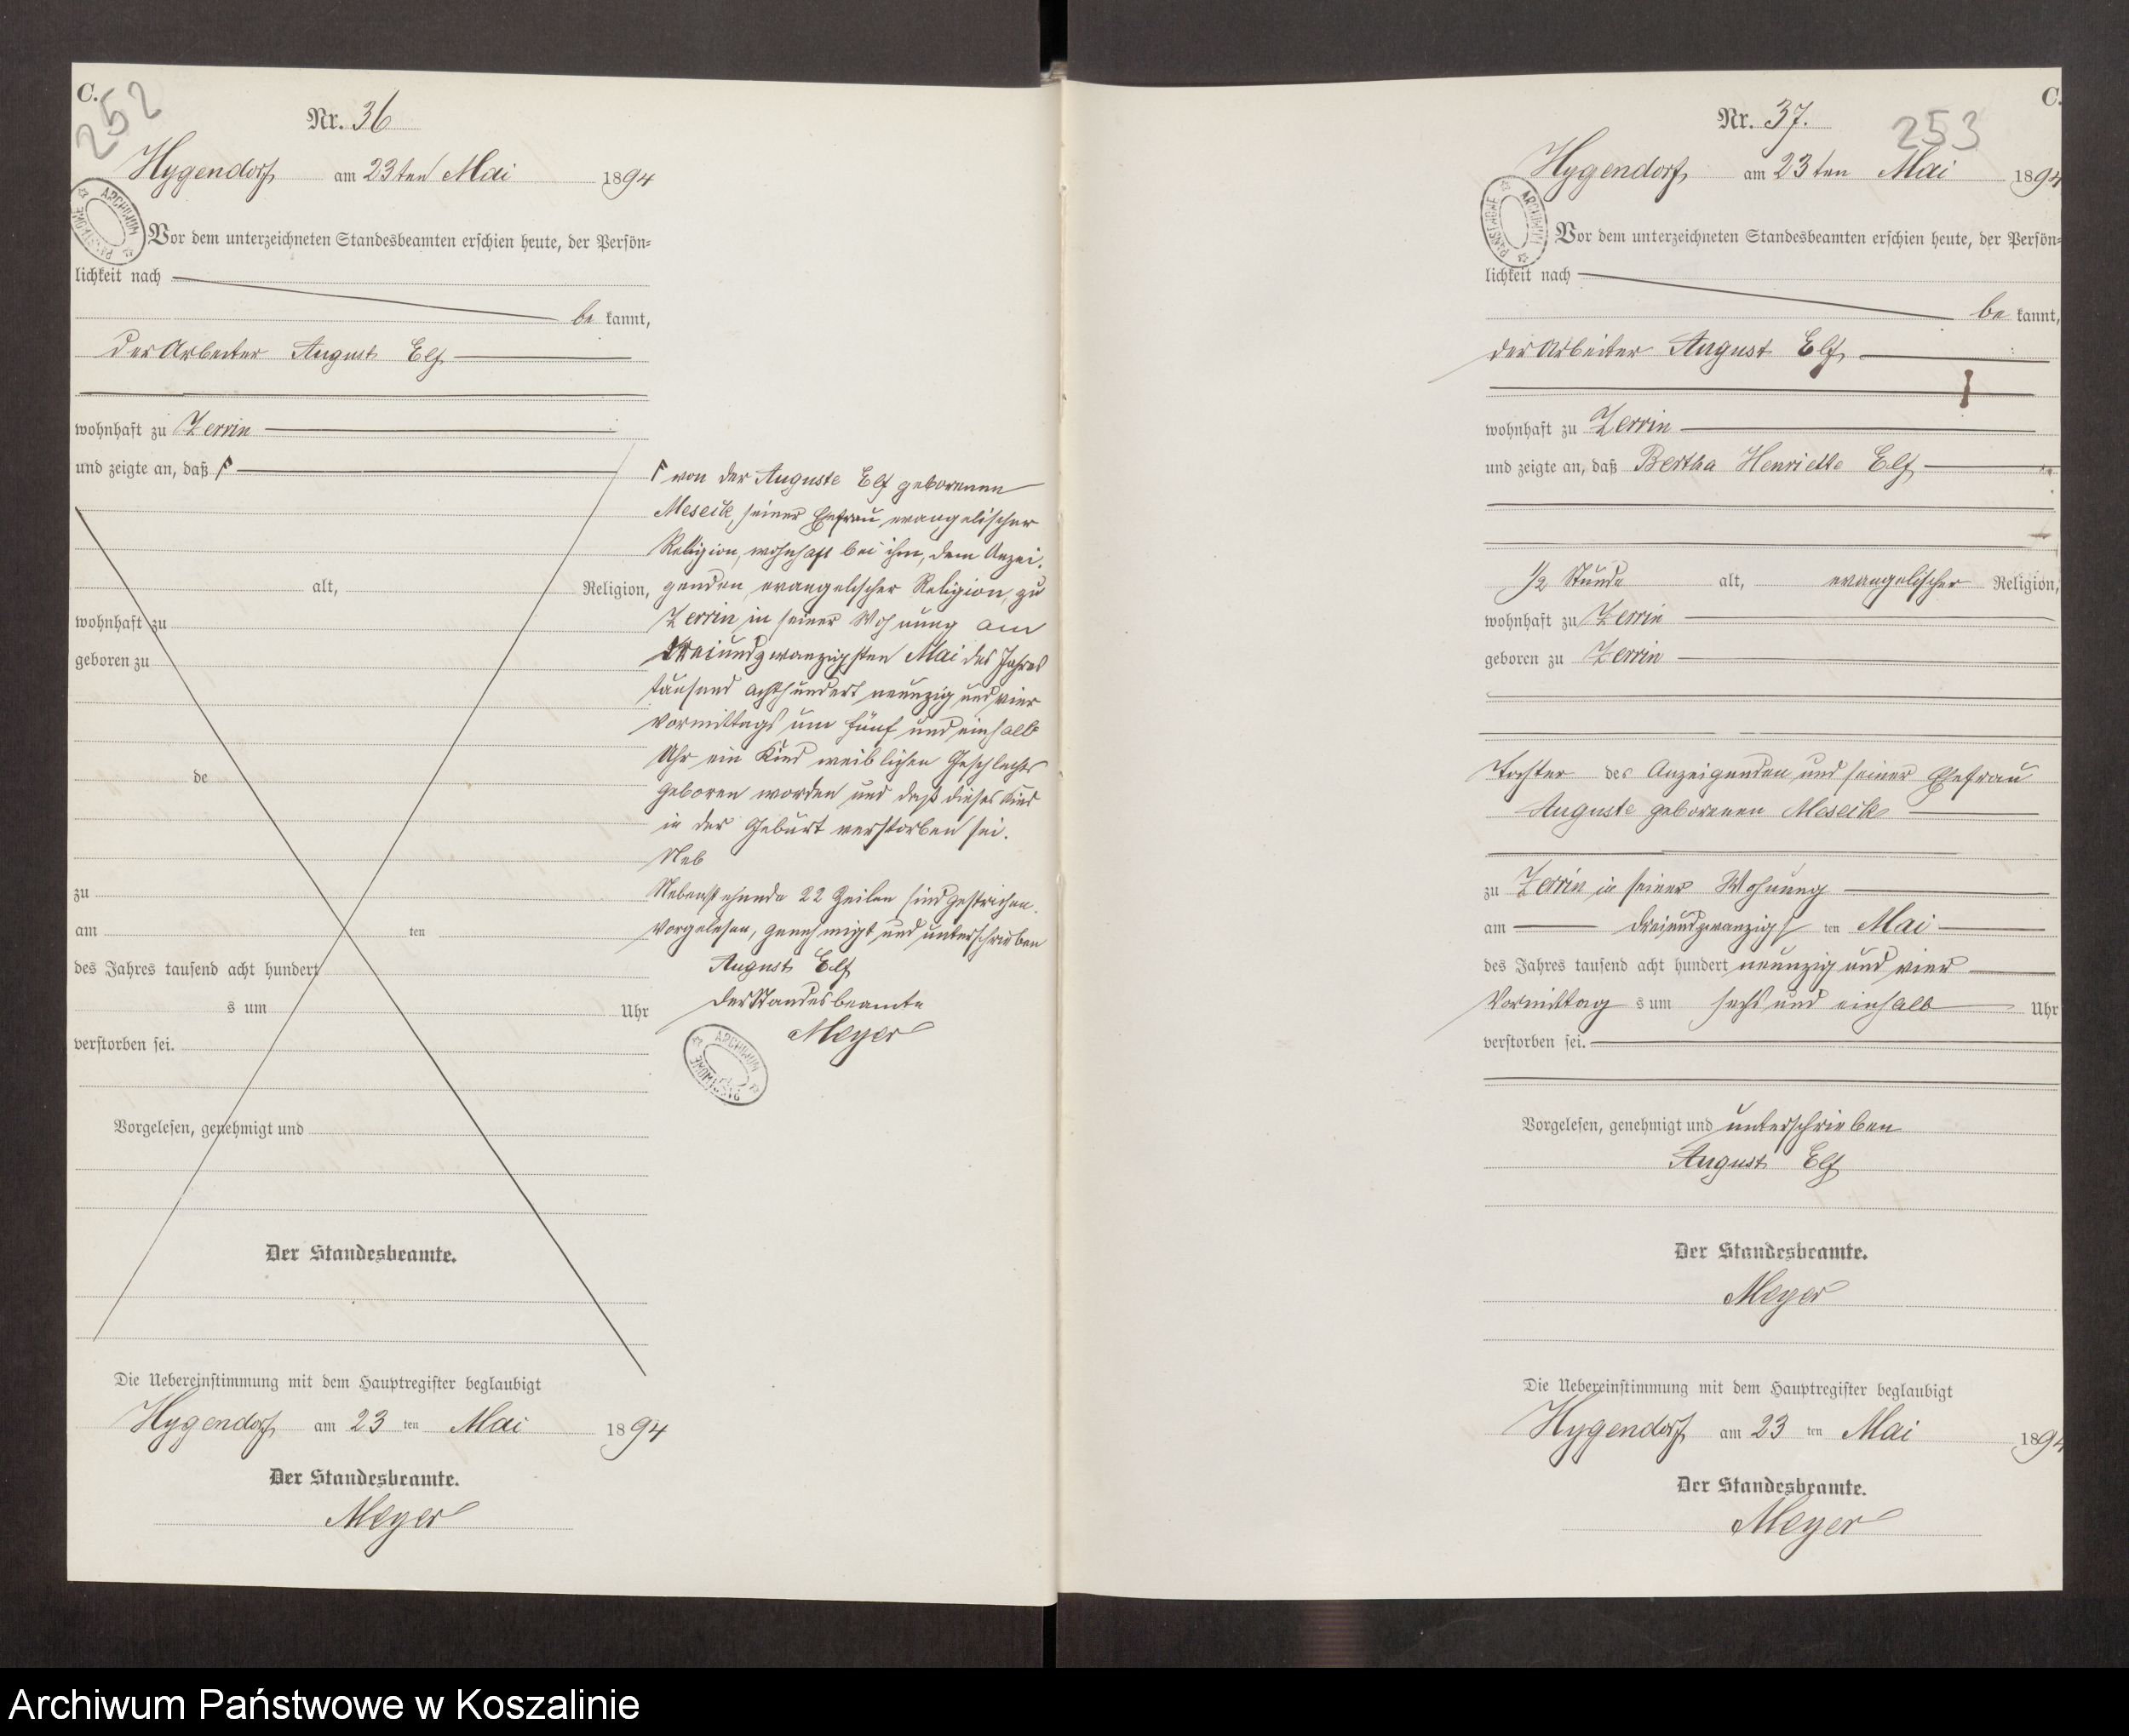 C.
252
Nr. 36
Hygendorf am 23ten Mai 1894
Vor dem unterzeichneten Standesbeamten erschien heute, der Persön-
lichkeit nach
be kannt,
der Arbeiter August Elf
wohnhaft zu Zerrin
und zeigte an, daß
alt, Religion,
wohnhaft zu
geboren zu
de
zu
am ten
des Jahres tausend acht hundert
s um Uhr
verstorben sei.
Vorgelesen, genehmigt und
Der Standesbeamte.
Die Uebereinstimmung mit dem Hauptregister beglaubigt
Hygendorf am 23 ten Mai 1894
Der Standesbeamte.
Meyer
von der Auguste Elf geborenen
Meseck, seiner Ehefrau, evangelischer
Religion, wohnhaft bei ihm, dem Anzei-
genden evangelischer Religion, zu
Zerrin in seiner Wohnung am
dreiundzwanzigsten Mai des Jahres
tausend achthundert neunzig und vier
Vormittags um fünf und einhalb
Uhr ein Kind weiblichen Geschlechts
geboren worden und daß dieses Kind
in der Geburt verstorben sei.
Neb
Nebenstehende 22 Zeilen sind gestrichen.
Vorgelesen, genehmigt und unterschrieben
August Elf
Der Standesbeamte
Meyer
ARCHIWUM
C.
253
Nr. 37.
Hygendorf am 23ten Mai 1894
ARCHIWUM PAŃSTWOWE
Vor dem unterzeichneten Standesbeamten erschien heute, der Persön-
lichkeit nach
be kannt,
der Arbeiter August Elf
wohnhaft zu Zerrin
und zeigte an, daß Bertha Henriette Elf
1/2 Stunde alt, evangelischer Religion,
wohnhaft zu Zerrin
geboren zu Zerrin
Tochter des Anzeigenden und seiner Ehefrau
Auguste geborenen Meseck
zu Zerrin in seiner Wohnung
am dreiundzwanzigs ten Mai
des Jahres tausend acht hundert neunzig und vier
Vormittag s um sechs und einhalb Uhr
verstorben sei.
Vorgelesen, genehmigt und unterschrieben
August Elf
Der Standesbeamte.
Meyer
Die Uebereinstimmung mit dem Hauptregister beglaubigt
Hygendorf am 23 ten Mai 1894
Der Standesbeamte.
Meyer
Archiwum Państwowe w Koszalinie